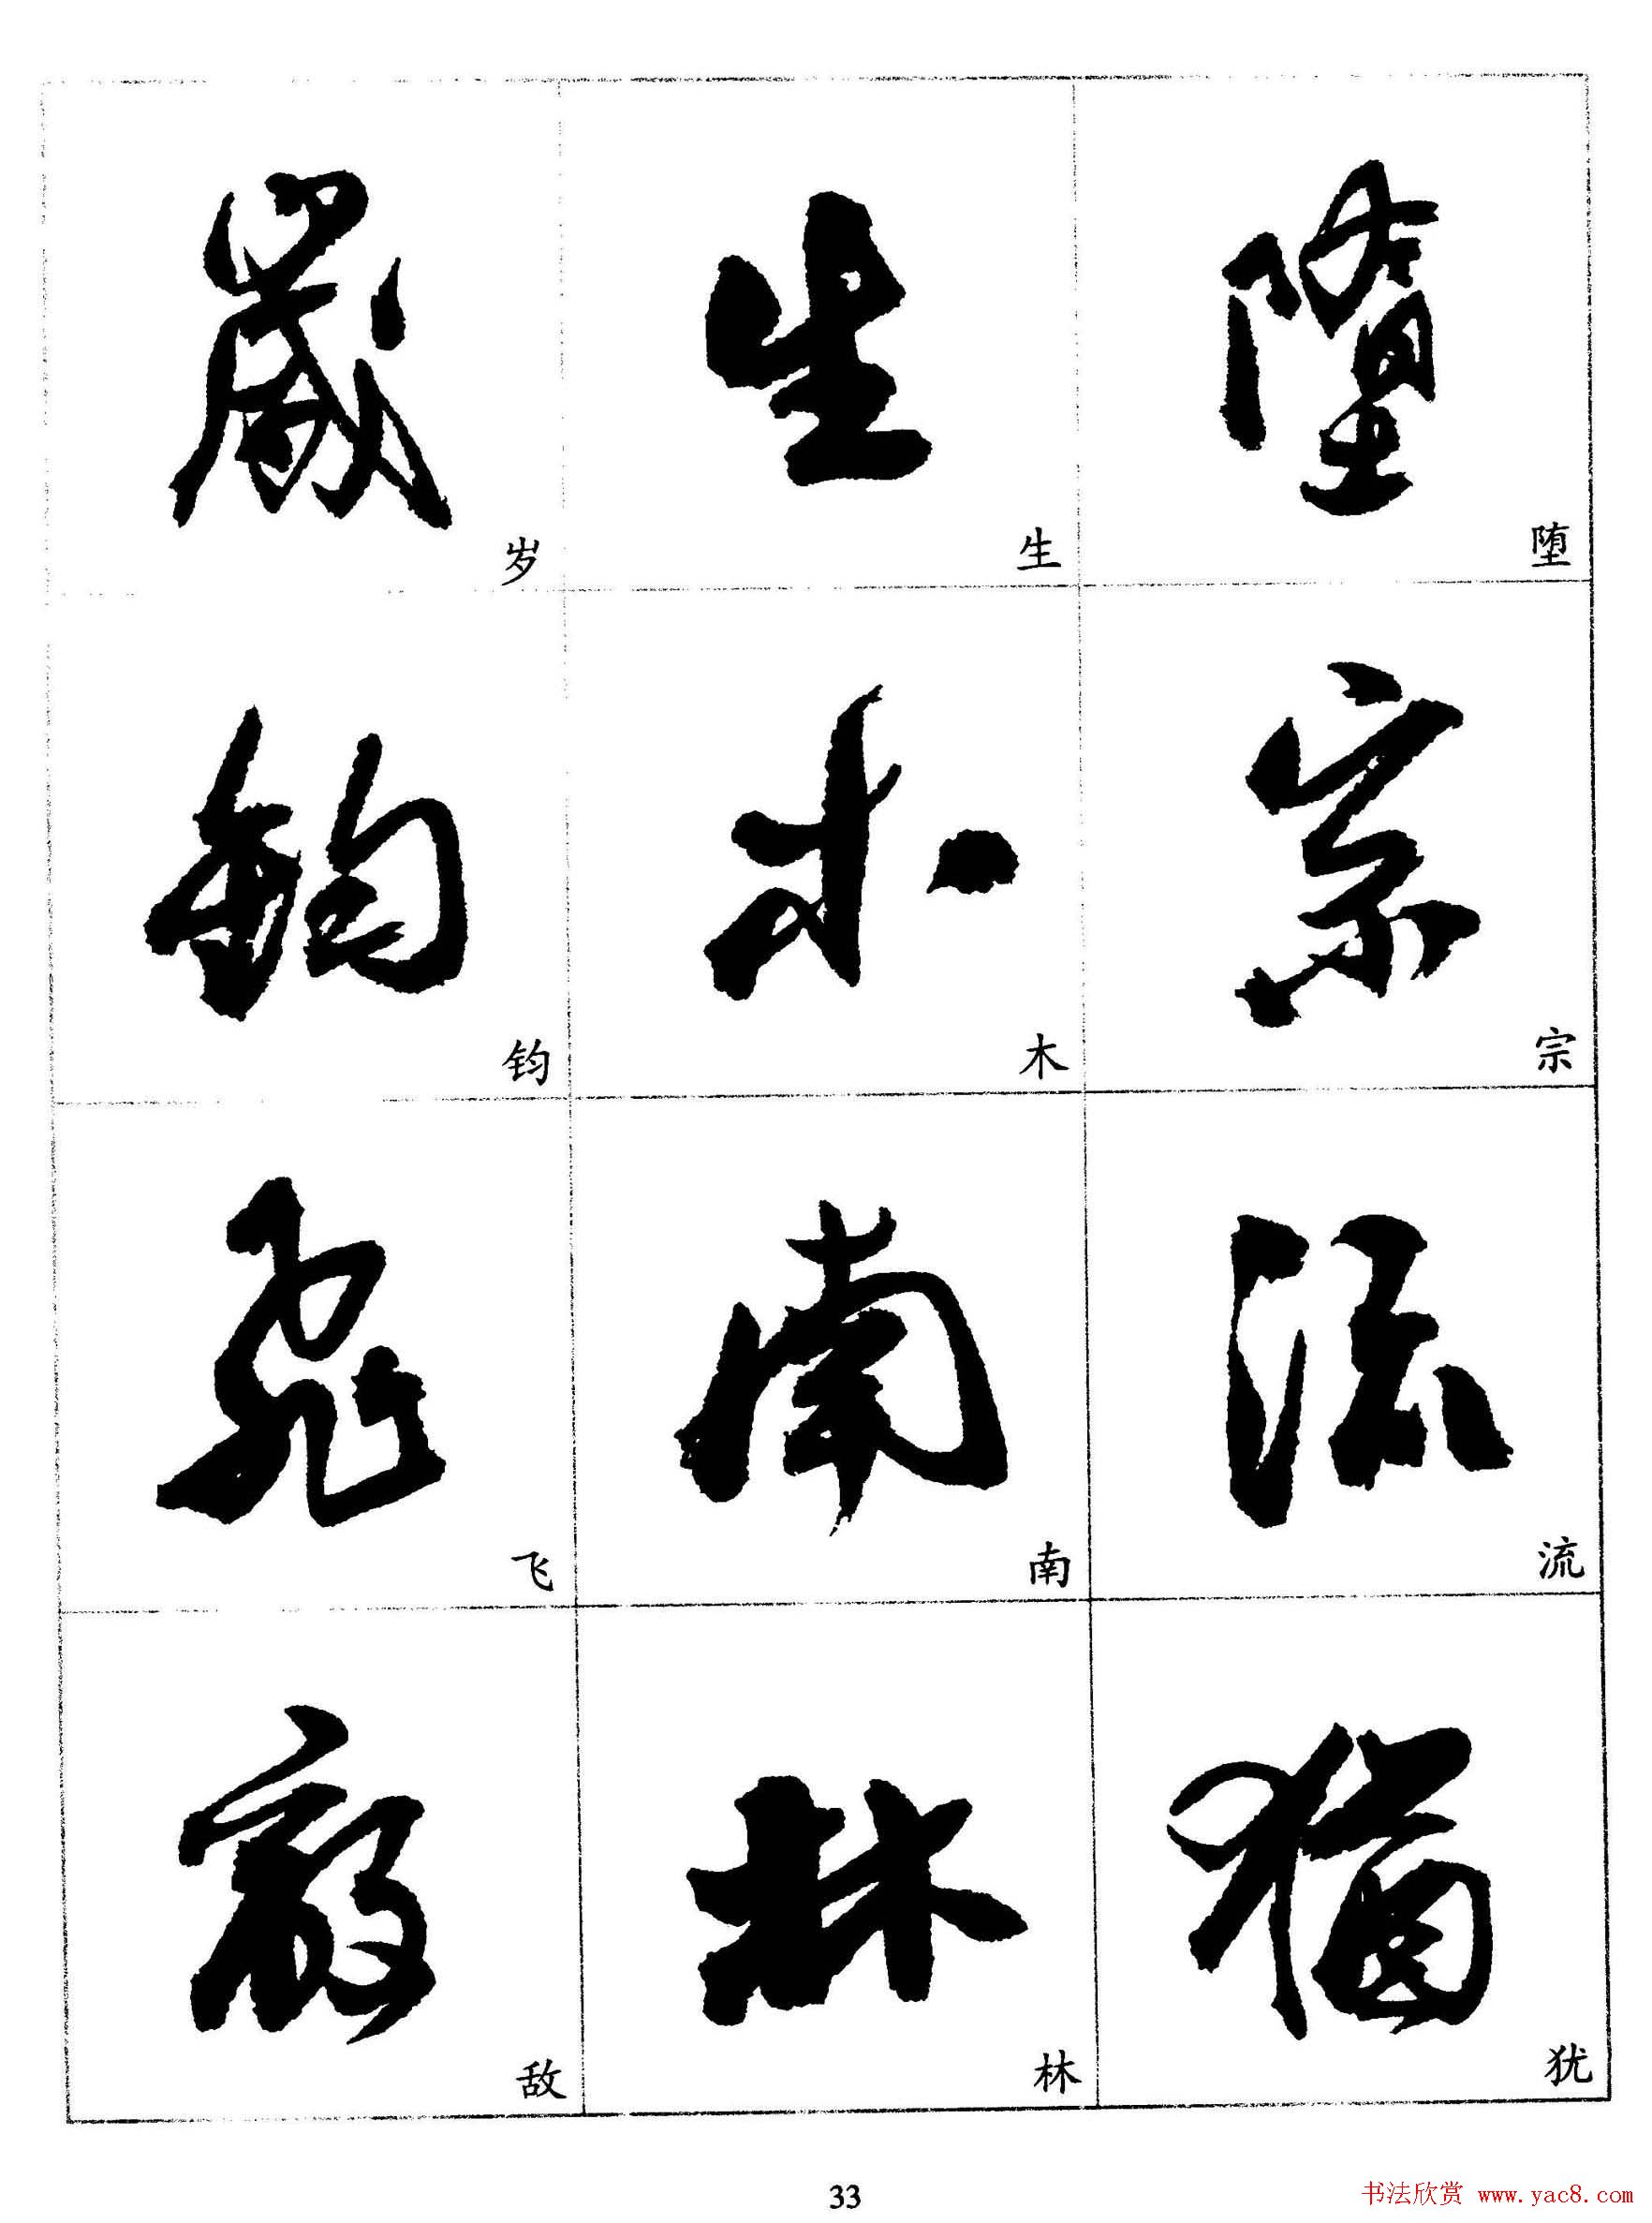 歲 生 墮
岁 生 堕
鈞 木 宗
钧 木 宗
飛 南 流
飞 南 流
敵 林 猶
敌 林 犹
33
书法欣赏 www.yac8.com